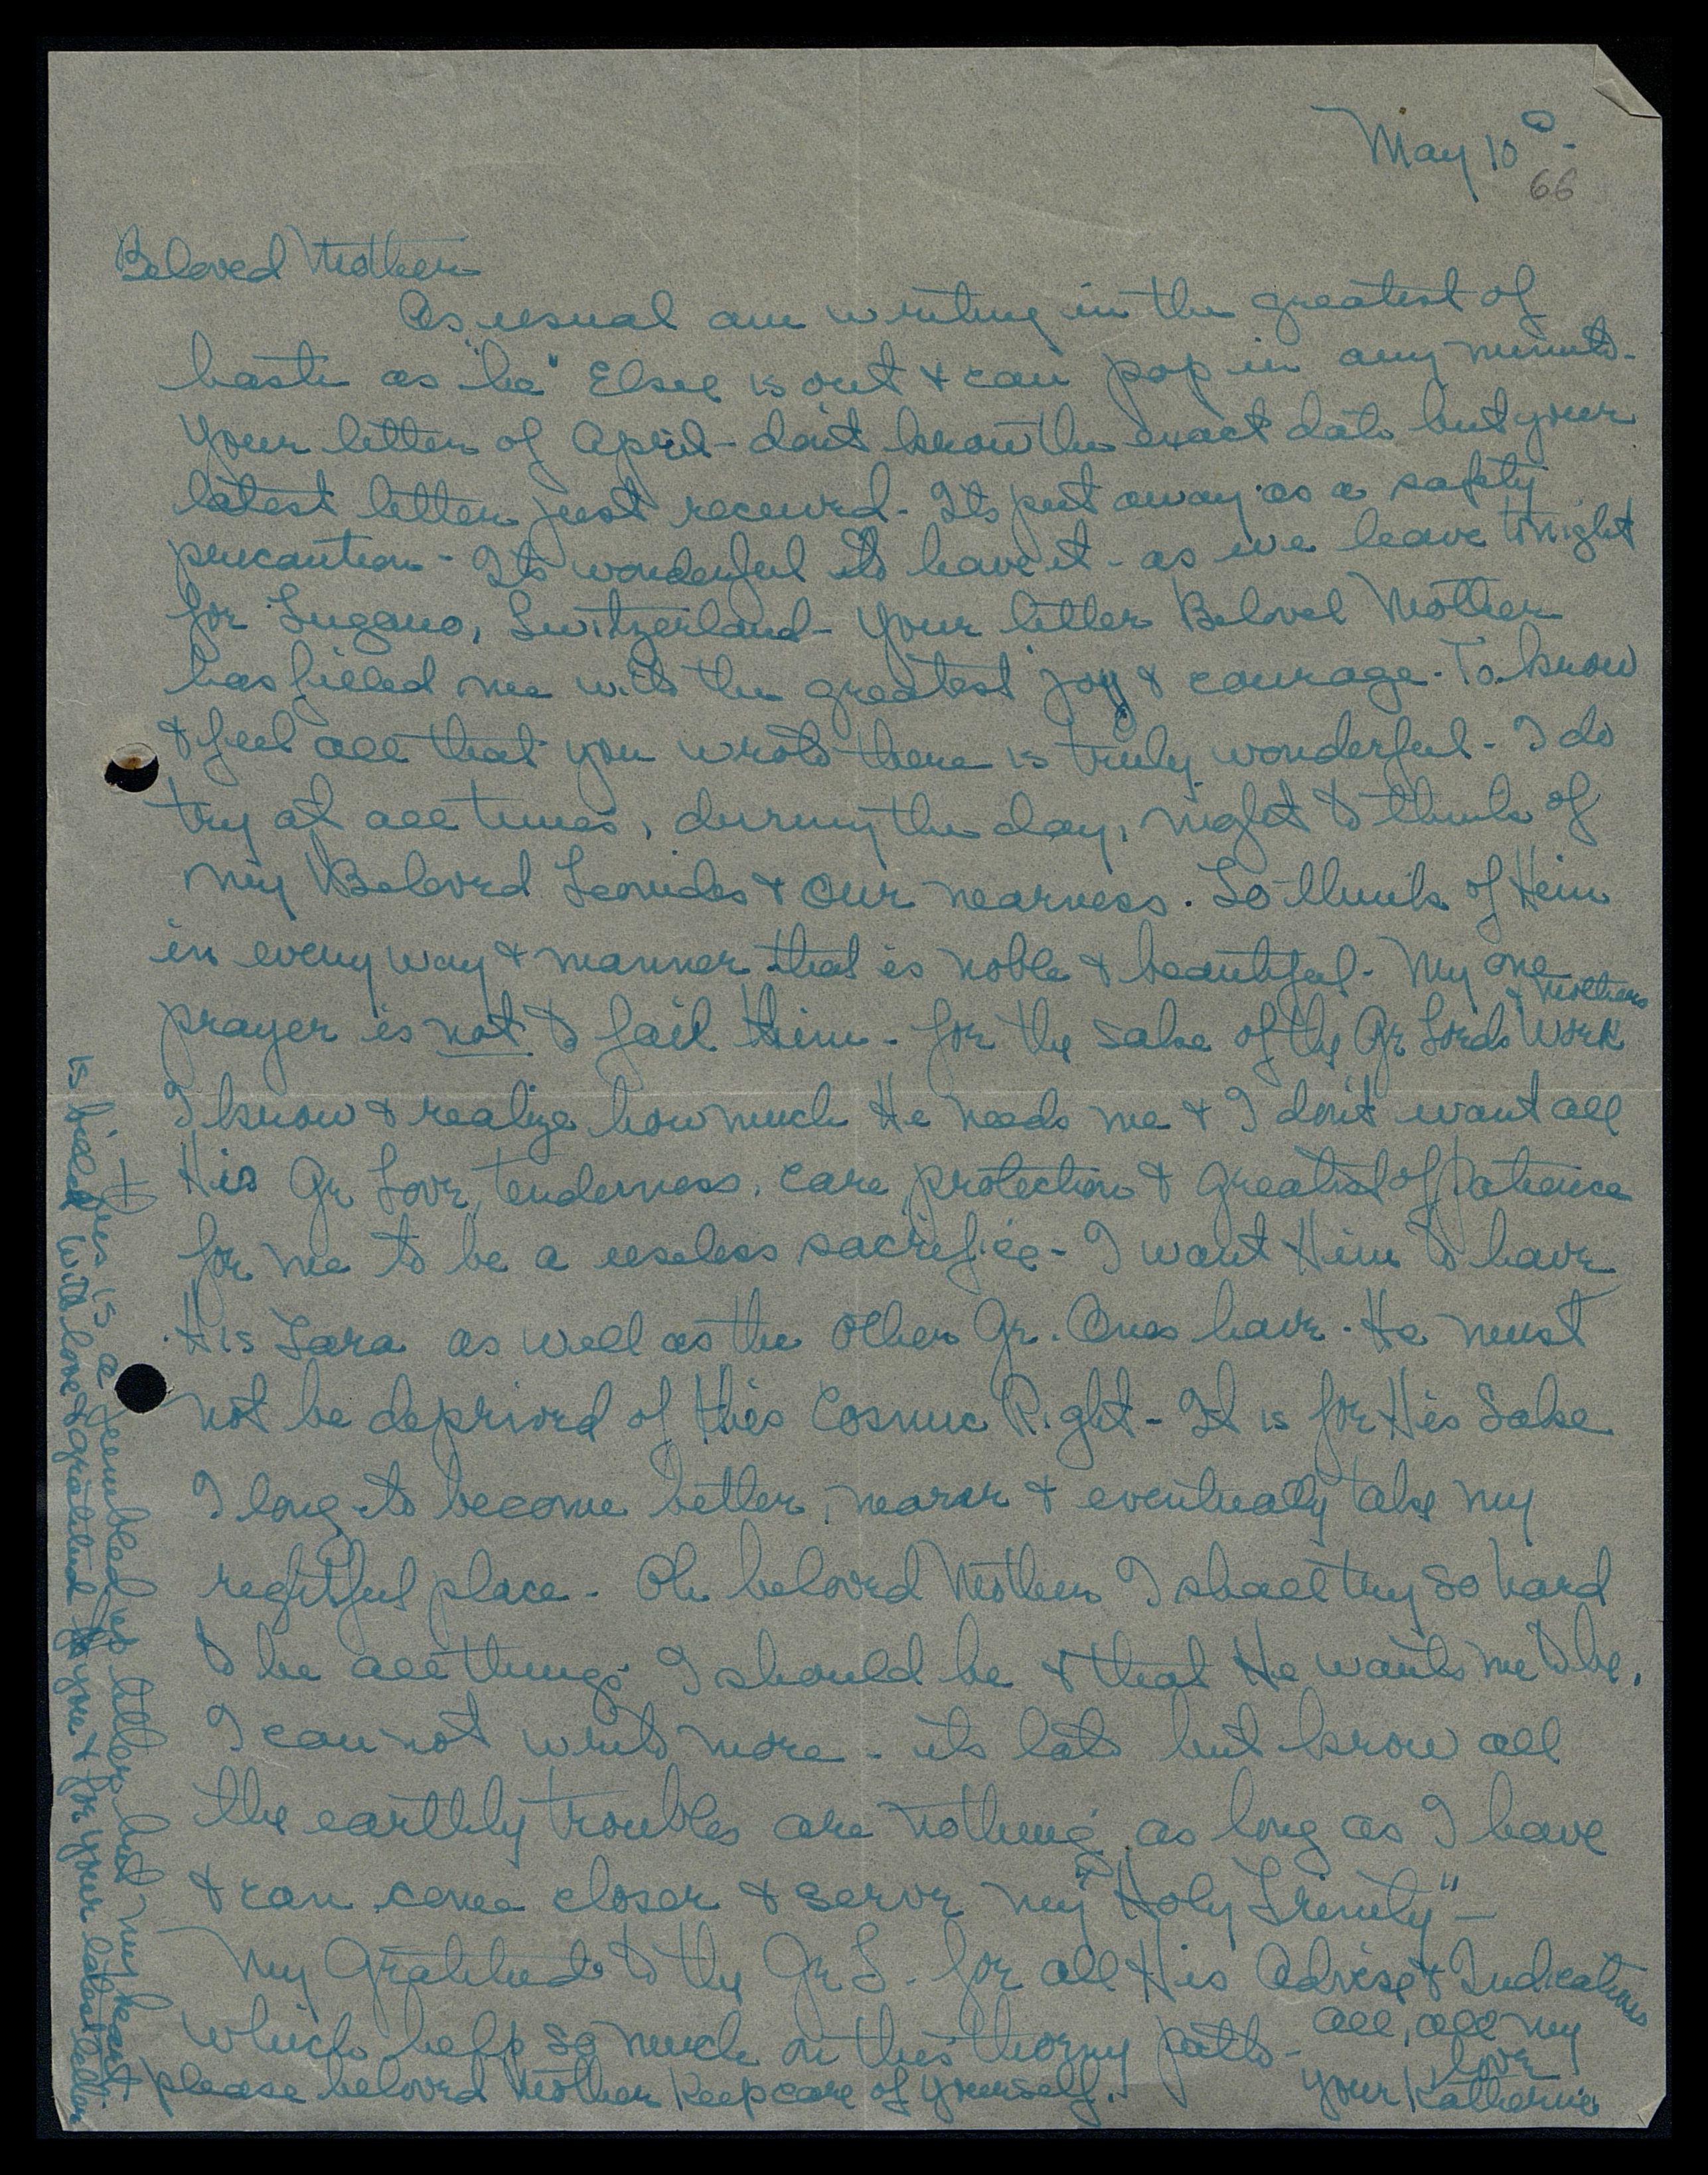 May 10º -
66
Beloved Mother
As usual am writing in the greatest of
haste as "he" Else is out & can pop in any minute -
Your letter of April - don't know the exact date but your
latest letter just received - Its put away as a safety
precaution - Its wonderful to have it - as we leave tonight
for Lugano, Switzerland - Your letter Beloved Mother
has filled me with the greatest joy & courage. To know
& feel all that you wrote there is truly wonderful - I do
try at all times, during the day, night to think of
my Beloved Leonides & our nearness. To think of Him
in every way & manner that is noble & beautiful - My one
prayer is not to fail Him - for the sake of the Gr Lords & Mothers Work
I know & realize how much He needs me & I don't want all
His Gr Love, tenderness, care, protection & greatest of Patience
for me to be a useless sacrifice - I want Him to have
His Tara as well as the other Gr. Ones have. He must
not be deprived of this Cosmic Right - It is for His Sake
I long to become better, nearer & eventually take my
rightful place - Oh beloved Mother I shall try so hard
to be all things I should be & that He wants me to be.
I can not write more - its late but know all
the earthly troubles are nothing as long as I have
& can come closer & serve my "Holy Trinity" -
My Gratitude to the Gr L. for all His Advise & Indications
which help so much on this thorny path -
& please beloved Mother keep care of yourself.
all, all my
love
your Katherine
This is a jumbled up letter but my heart
is filled with love & gratitude to you & for your latest letter